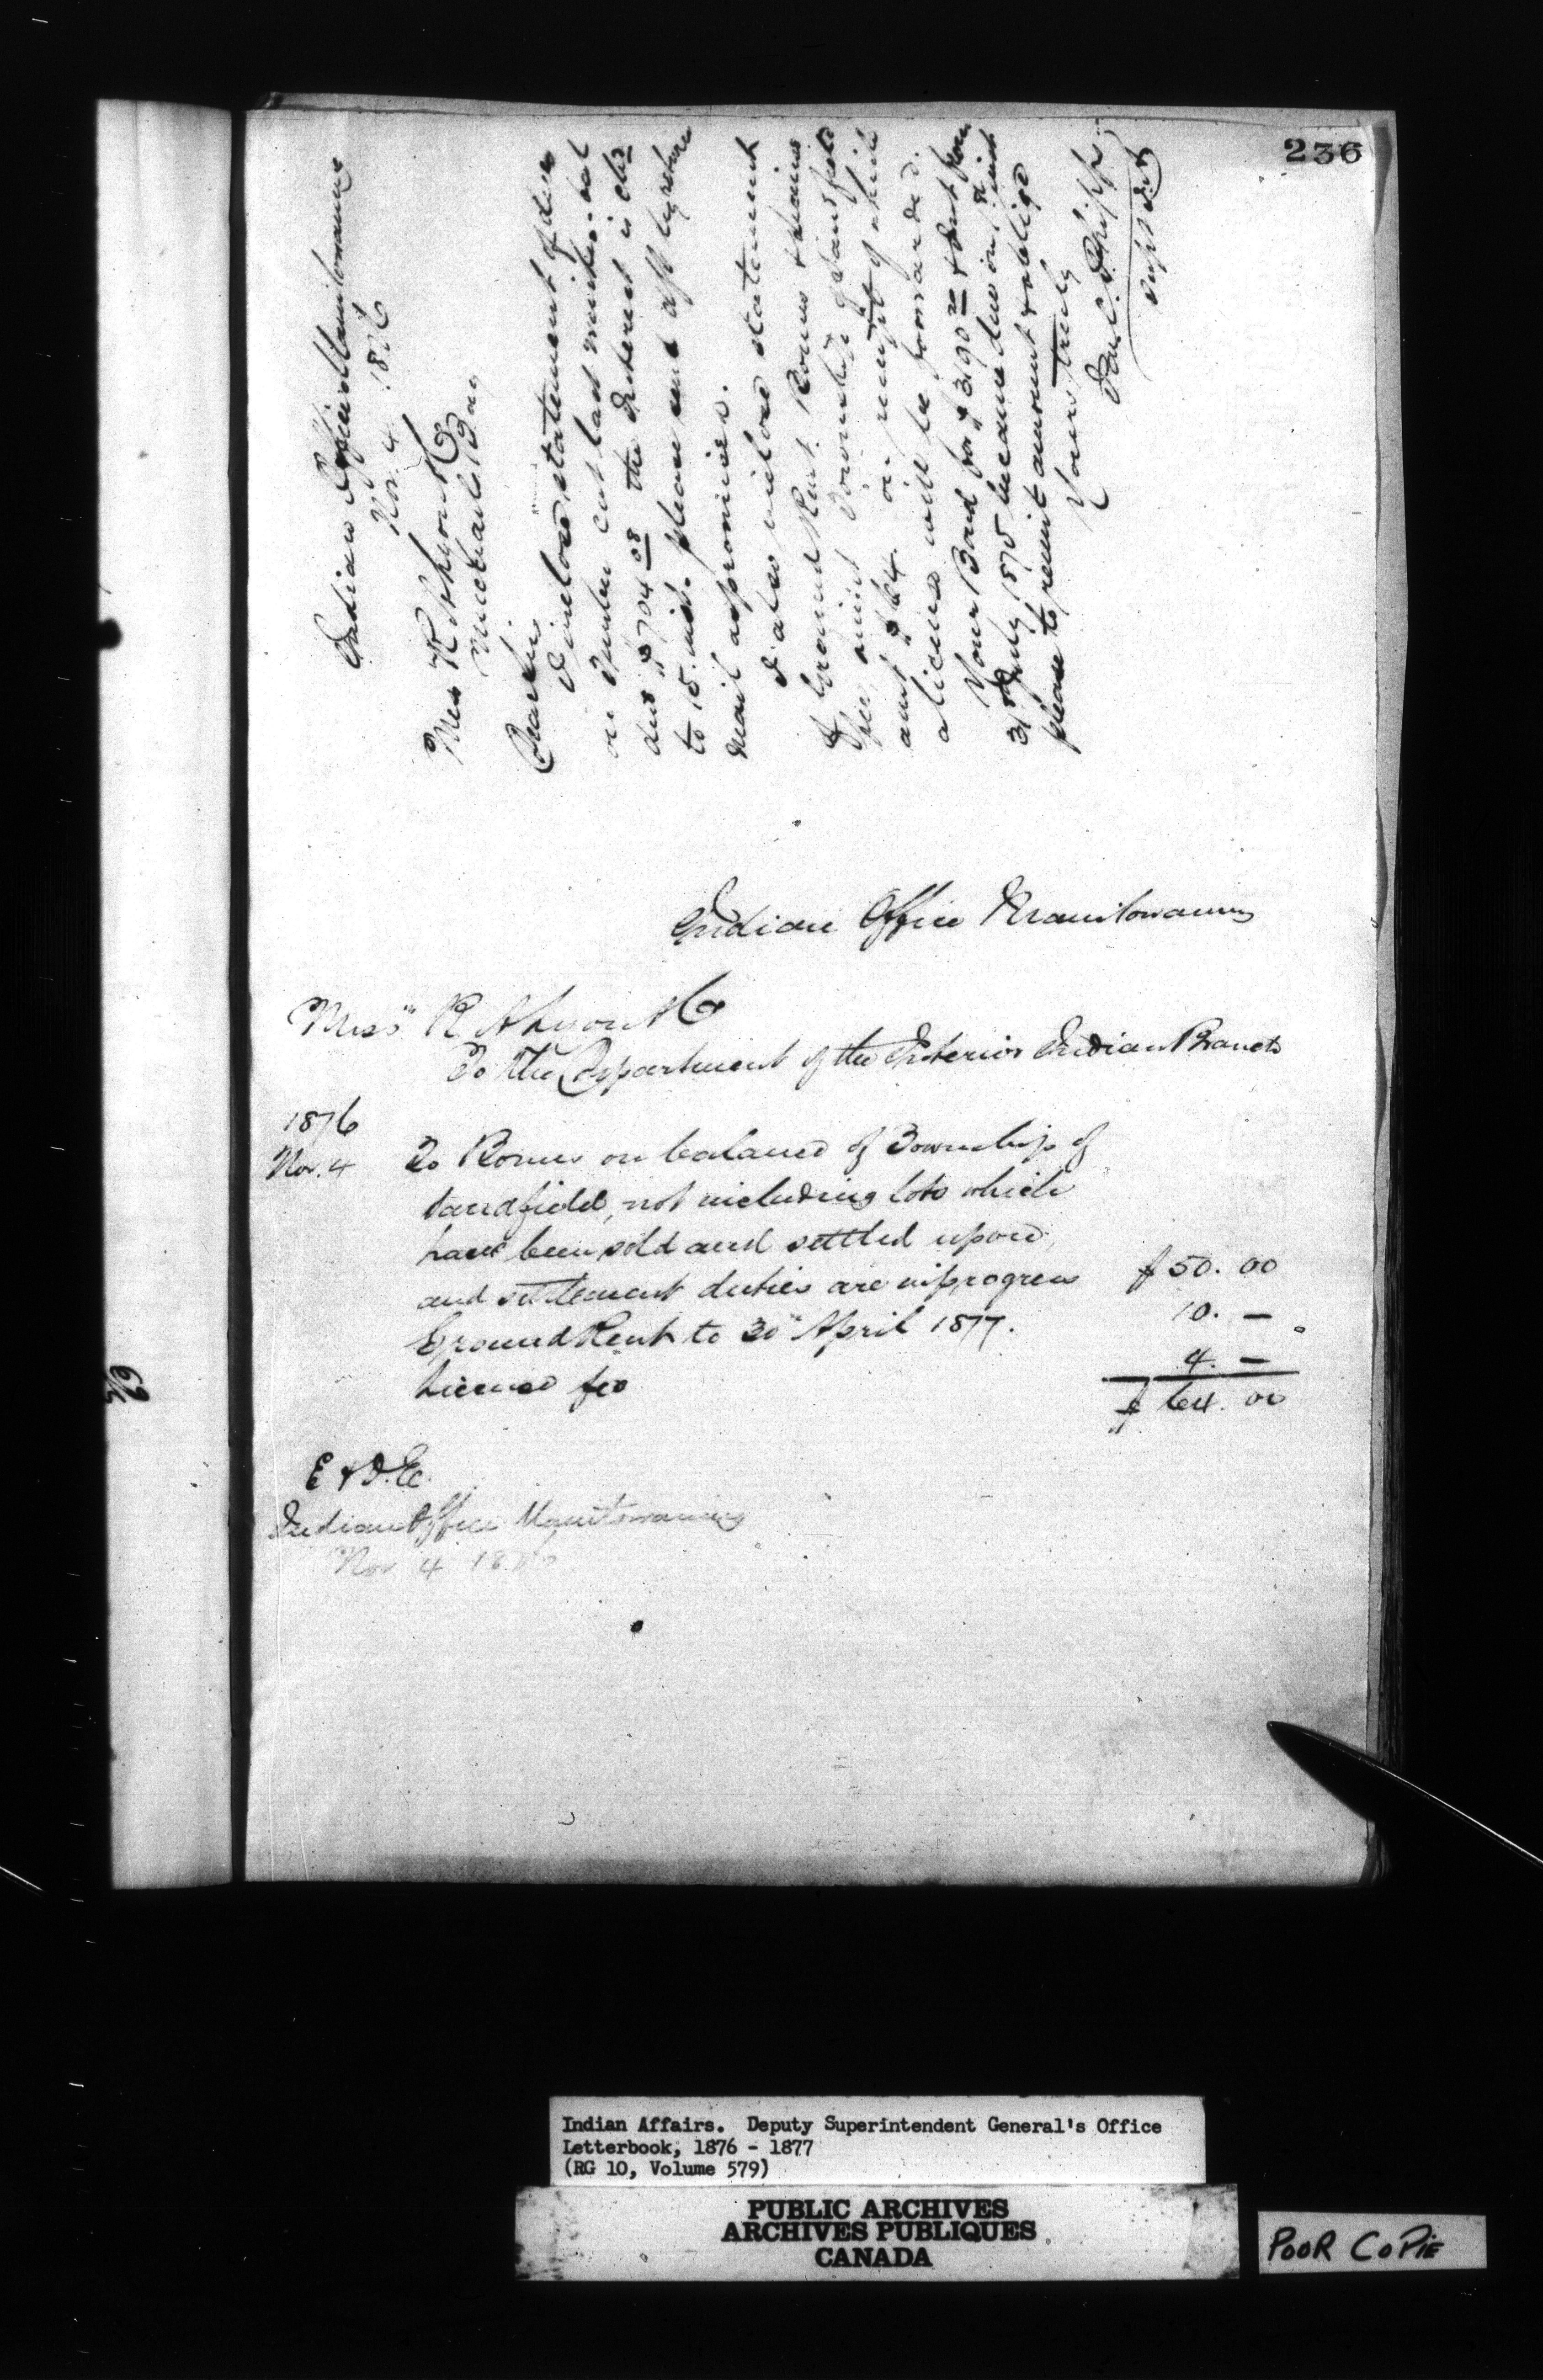 236
Indian Office Manitowaning
Nov. 4 1876
Mess R A Lyon & Co
Michael's Bay
Dear Sirs
I inclose statement of dues
on timber cut last winter. bal
due $704.08 the Interest is cld
to 15 inst. please send asst by return
mail as promised.
I also inclose statement
of Ground Rent Bonus & License
fee Township of Sandfield
amt $64. on receipt of which
a license will be forwarded.
Your Bond for $390.20
31st July 1875 became due on inst
please to remit amount & oblige
Yours truly
J. C. Phipps
Supt
Indian Office Manitowaning
Mess" R A Lyon & Co
To the Department of the Interior Indian Branch
1876
Nov. 4 To Bonus on balance of Township of
Sandfield, not including lots which
have been sold and settled upon,
and settlement duties are in progress $50.00
Ground Rent to 30" April 1877. 10. —
License fee 4. —
$64.00
E & O. E.
Indian Office Manitowaning
Nov 4 1876
Indian Affairs. Deputy Superintendent General's Office
Letterbook, 1876 - 1877
(RG 10, Volume 579)
PUBLIC ARCHIVES
ARCHIVES PUBLIQUES
CANADA
POOR COPIE